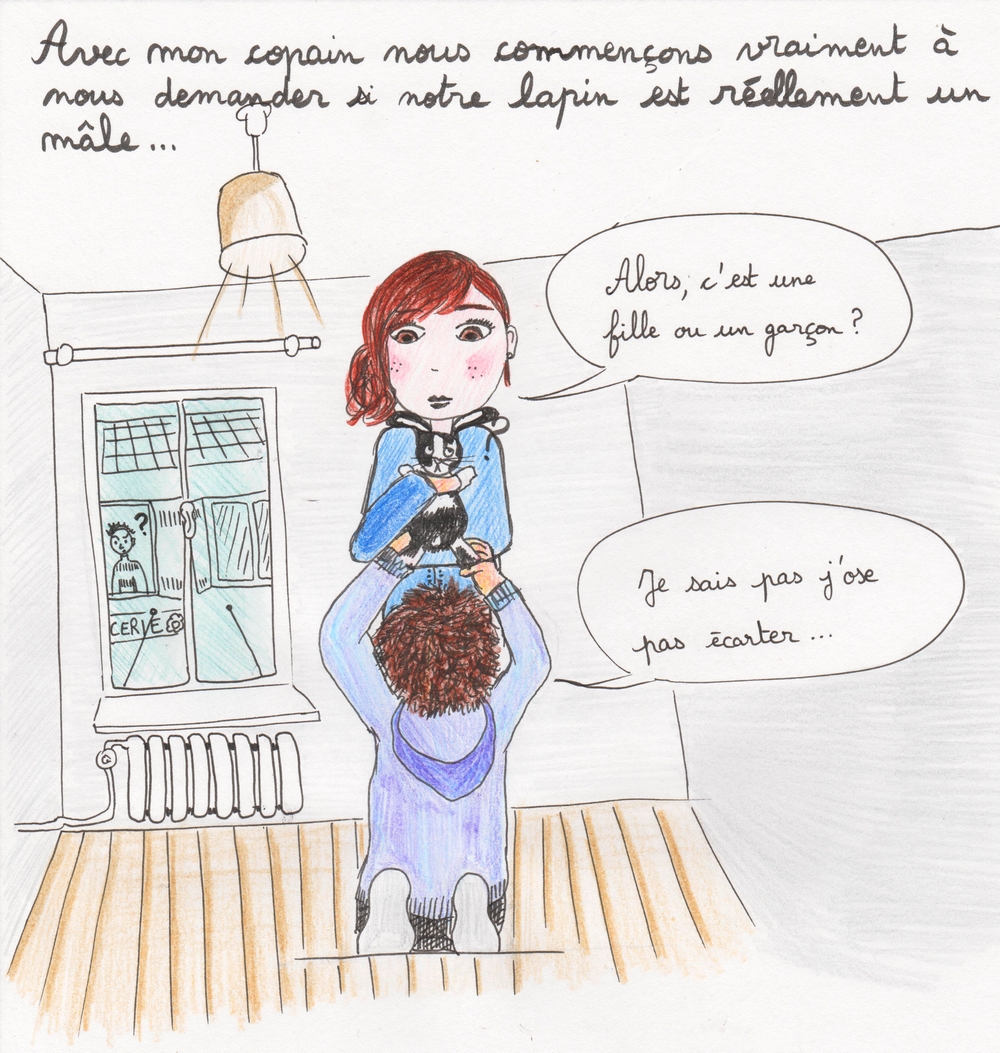 Avec mon copain nous commençons vraiment à
nous demander si notre lapin est réellement un
mâle...
Alors, c'est une
fille ou un garçon ?
Je sais pas j'ose
pas écarter...
?